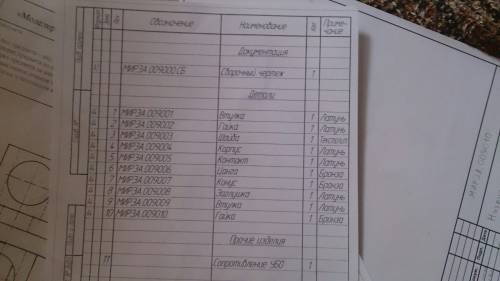 «Молатер
Поз. Обозначение Наименование Кол Приме-чание
Документация
МИРЗА.009000 СБ Сборочный чертеж 1
Детали
1 МИРЗА.009001 Втулка 1 Латунь
2 МИРЗА.009002 Гайка 1 Латунь
3 МИРЗА.009003 Шайба 1 Текстолит
4 МИРЗА.009004 Корпус 1 Латунь
5 МИРЗА.009005 Контакт 1 Латунь
6 МИРЗА.009006 Цанга 1 Бронза
7 МИРЗА.009007 Конус 1 Бронза
8 МИРЗА.009008 Заглушка 1 Латунь
9 МИРЗА.009009 Втулка 1 Латунь
10 МИРЗА.009010 Гайка 1 Бронза
Прочие изделия
11 Сопротивление УБО 1